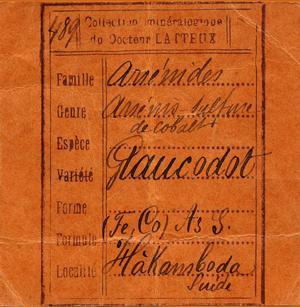 489 Collection minéralogique
du Docteur LATTEUX
Famille Arsénides
Genre Arsénio-sulfure
de cobalt
Espèce Glaucodot
Variété
Forme
Formule (Fe, Co) As S.
Localité Håkansboda
Suède